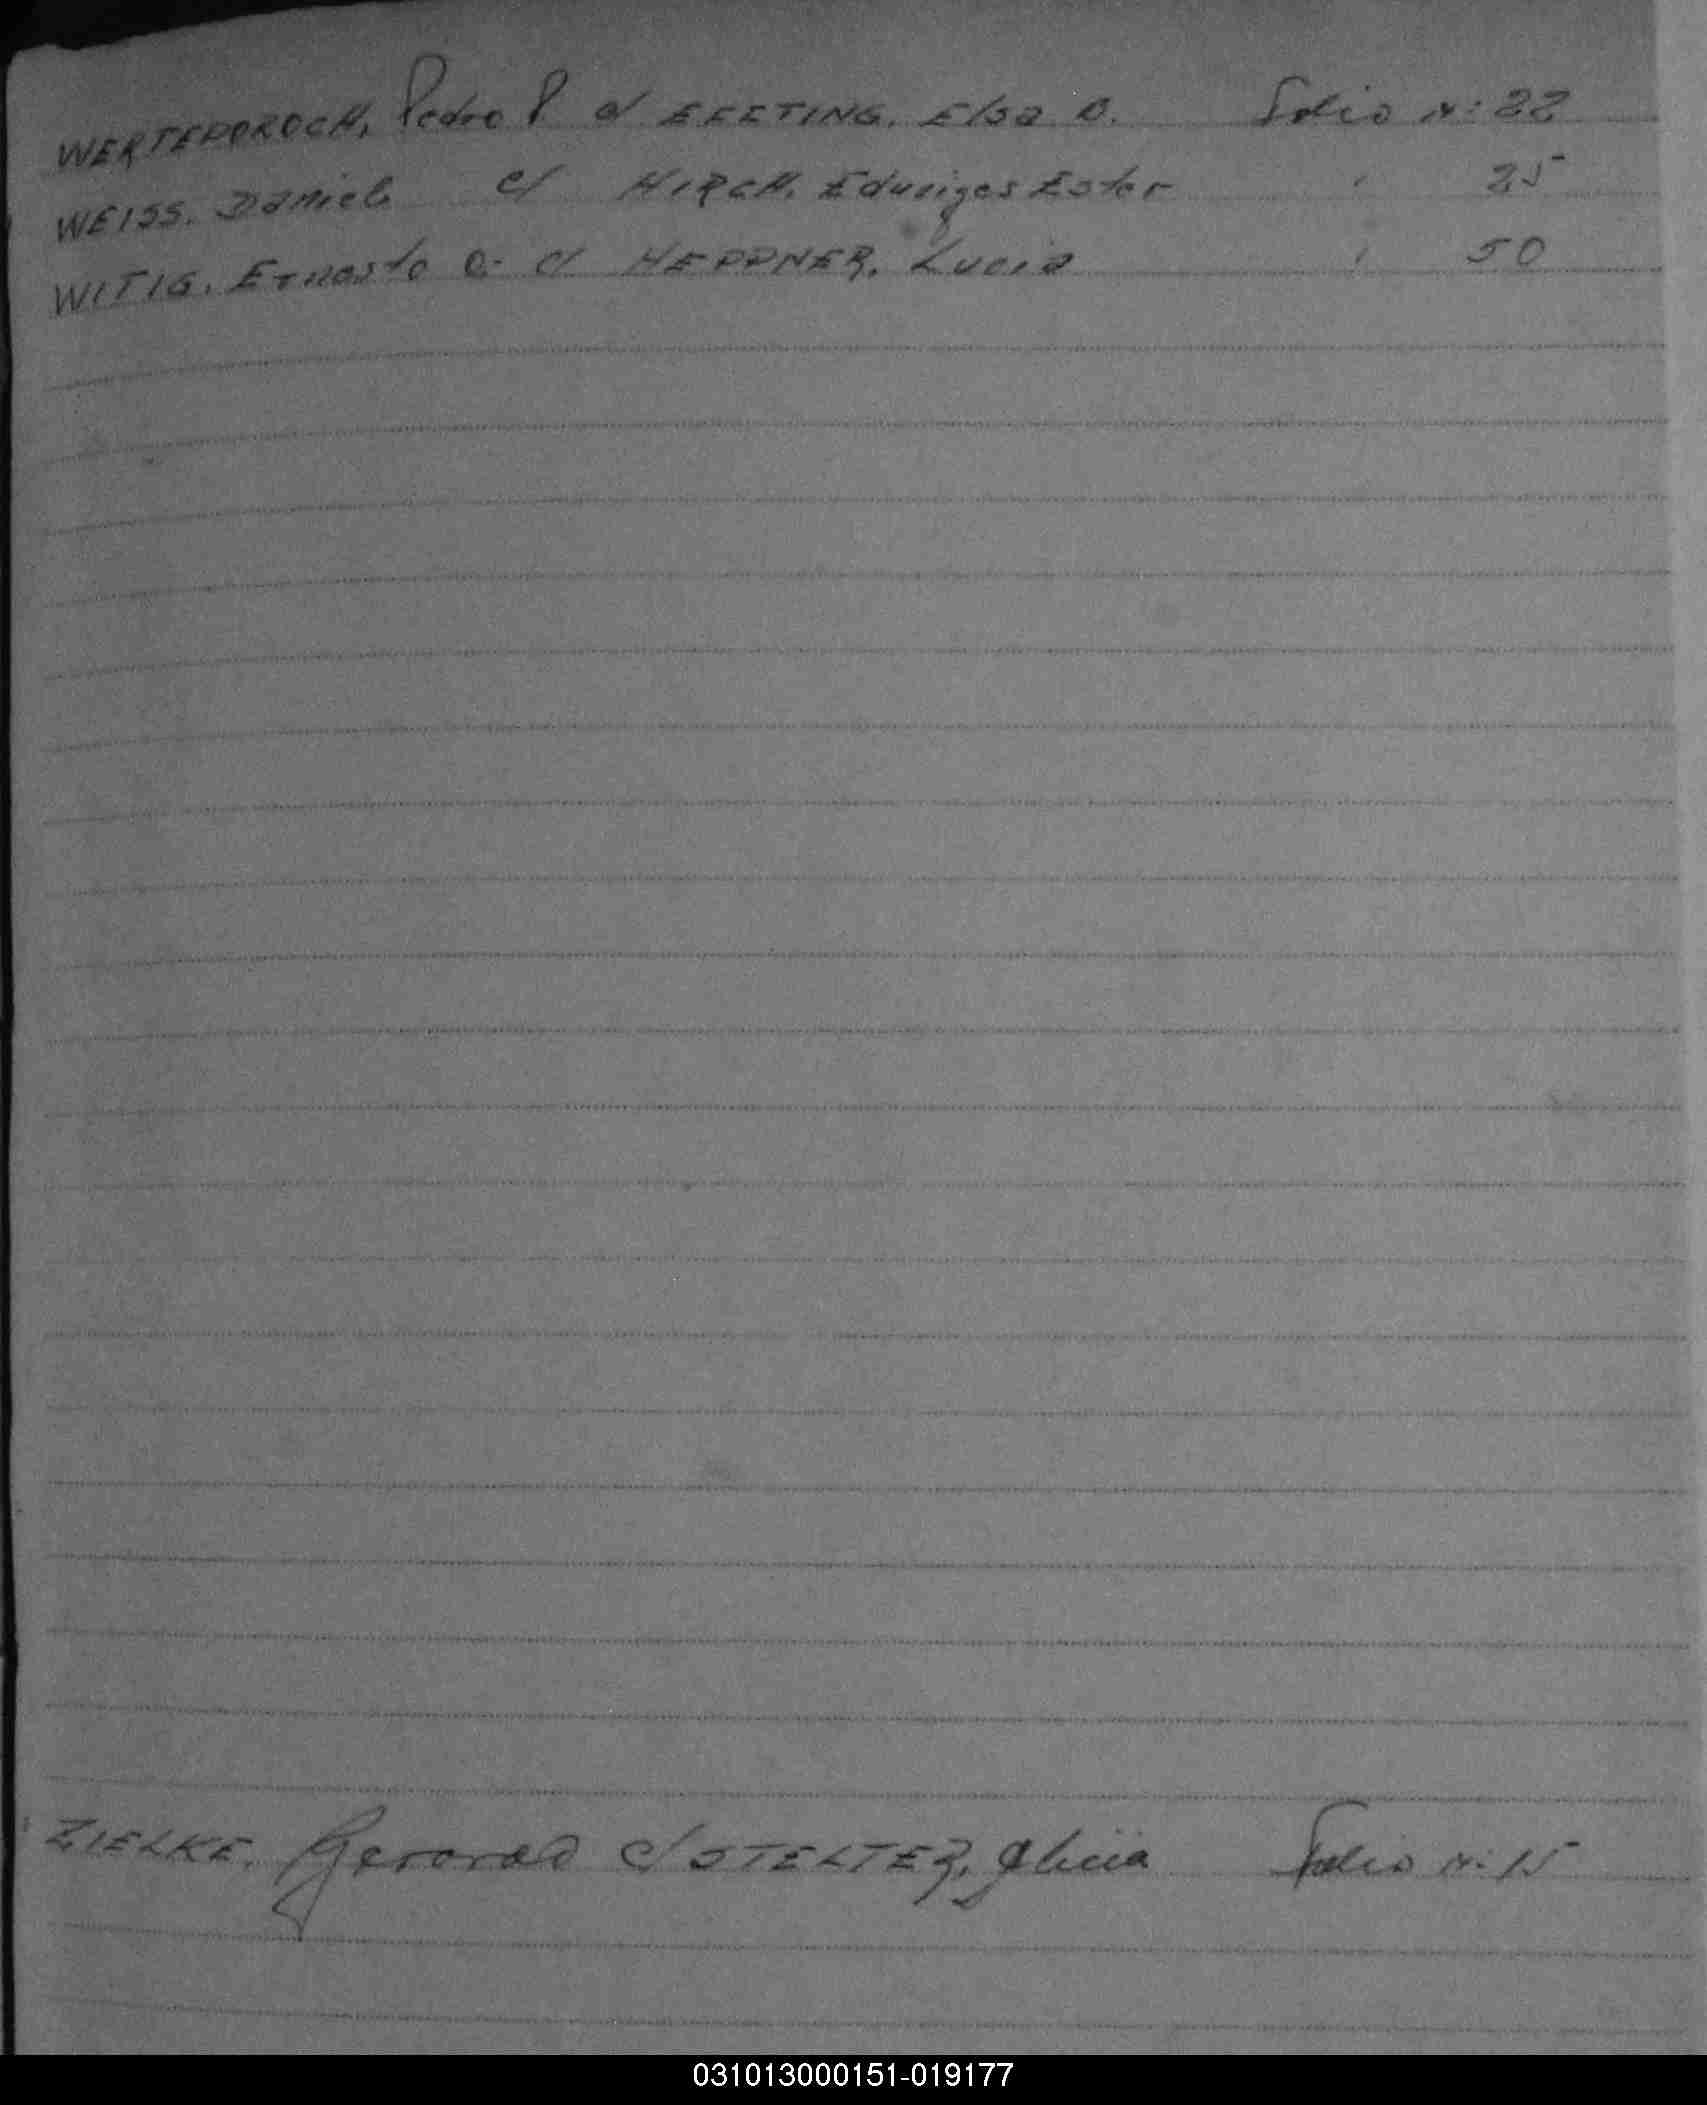 WERTEPOROCH, Pedro P. c/ EEETING, Elsa O. Folio N: 22
WEISS. Daniel c/ HIRCH. Eduviges Ester " 25
WITIG. Ernesto c/ HEPPNER. Lucia " 50
ZIELKE. Gerorad c/ STELTER, Alicia Folio N: 15
031013000151-019177